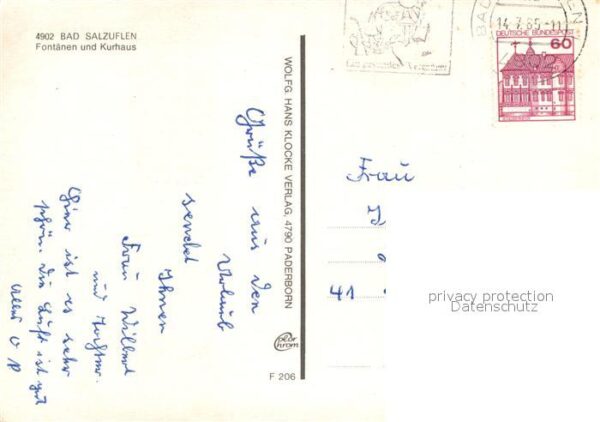 4902 BAD SALZUFLEN
Fontänen und Kurhaus
Grüße aus dem
Urlaub
sendet
Ihnen
Frau
und
Hier ist es sehr
schön. Die Luft ist gut
WOLFG. HANS KLOCKE VERLAG, 4790 PADERBORN
color
chrom
F 206
BAD SALZUFLEN
14.7.85-11
4902
DEUTSCHE BUNDESPOST
60
Frau
41
privacy protection
Datenschutz